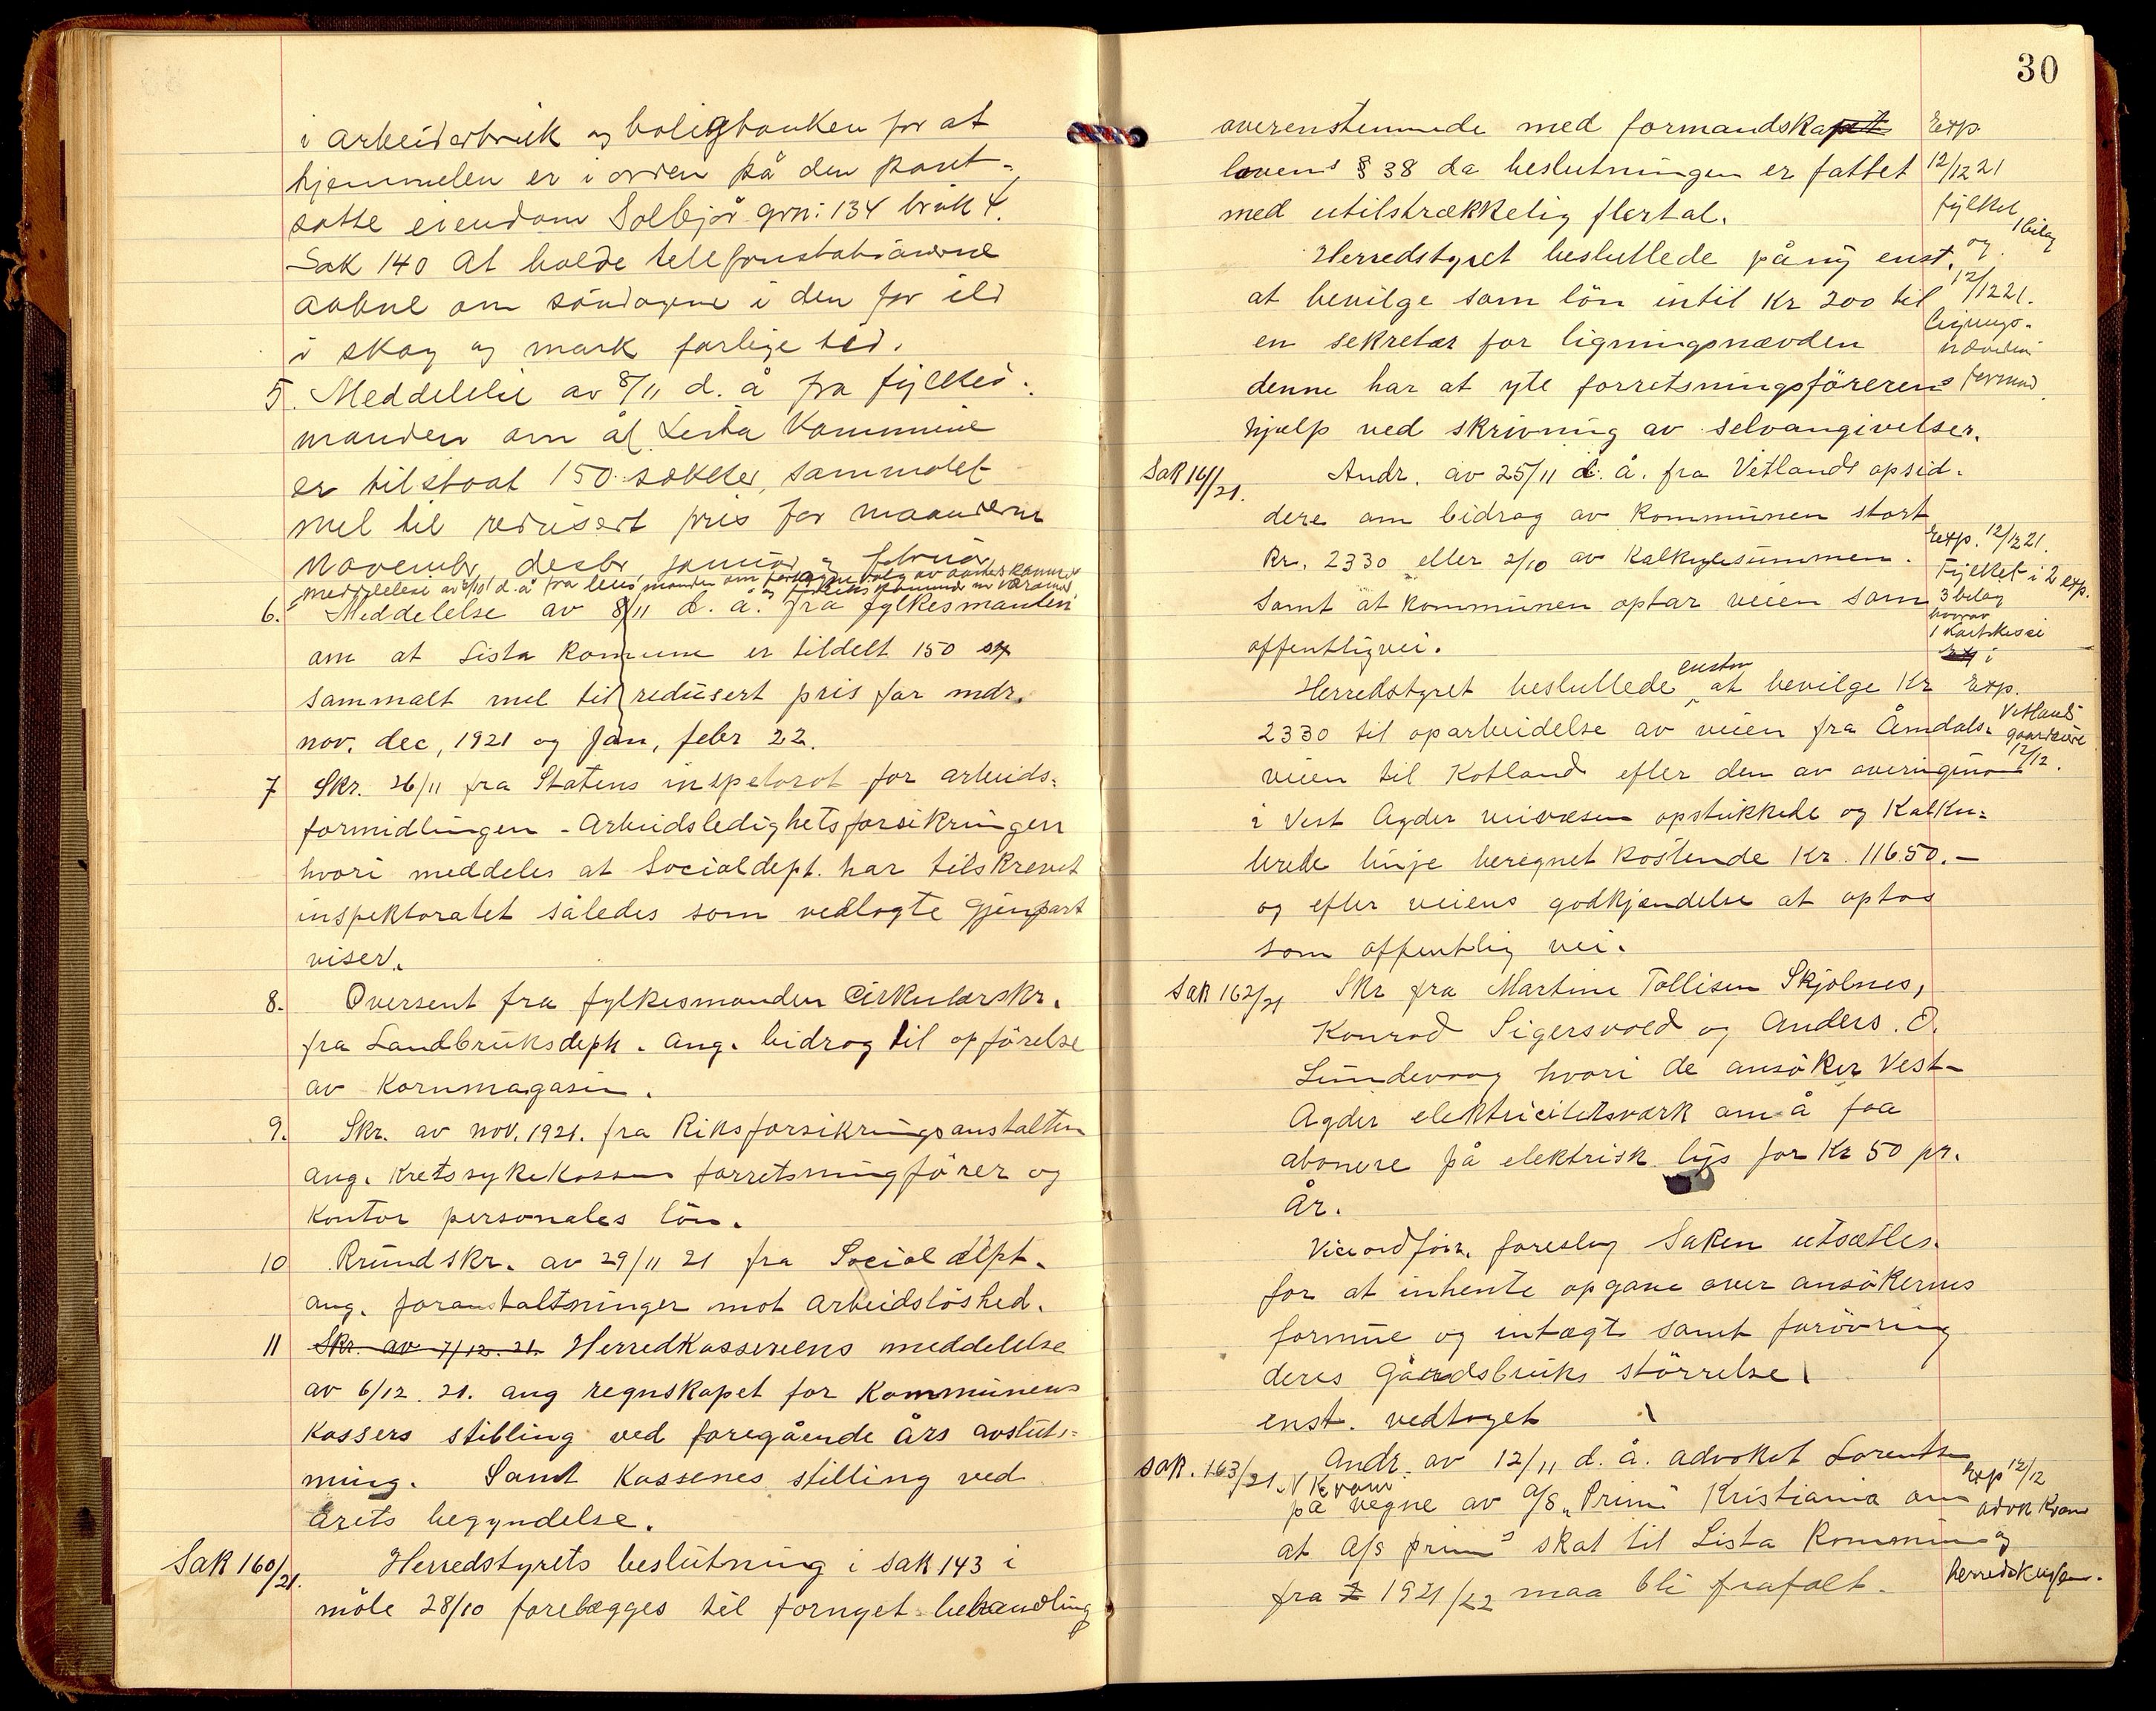 i arbeiderbruk og boligbanken for at
hjemmelen er i orden på den pant-
satte eiendom Solbjør grn: 134 bruk 4.
Sak 140 At holde telefonstationerne
aabne om søndagene i den for ild
i skog og mark farlige tid.
5. Meddelelse av 8/11 d. å fra fylkes-
manden om at Lista Kommune
er tilstaat 150 sækker, sammalt
mel til redusert pris for maanderne
November, desbr januar og februar
Meddelelse av 8/10 d. å fra lens manden om
6. Meddelelse av 8/11 d. å. fra fylkesmanden
om at Lista Komune er tildelt 150 sk
sammalt mel til redusert pris for mdr.
nov. dec, 1921 og jan, febr 22.
7 Skr. 26/11 fra Statens inspetorat for arbeids-
formidlingen - Arbeidsledighetsforsikringen
hvori meddeles at Socialdept. har tilskrevet
inspektoratet således som vedlagte Gjenpart
viser.
8. Oversent fra fylkesmanden Cirkulærskr.
fra Landbruksdept. ang. bidrag til opførelse
av Kornmagasin.
9. Skr. av nov. 1921. fra Riksforsikringsanstalten
ang. Kretssykekassen forretsningfører og
Kontor personales løn.
10 Rundskr. av 29/11 21 fra Social dept.
ang. foranstaltninger mot arbeidsløshed.
11 Skr. av 7/12. 21. Herredkasserens meddelelse
av 6/12. 21. ang regnskapet for Kommunens
Kassers stilling ved foregående års avslut-
ning. Samt Kassenes stilling ved
årets begyndelse.
Sak 160/21. Herredstyrets beslutning i sak 143 i
møte 28/10 forelægges til fornyet behandling
30
overenstemmede med formandskapet
lovens § 38 da beslutningen er fattet
med utilstrækkelig flertal.
Exp.
12/12 21
fylket
1 bilag
og
12/12 21.
lignings-
nævdens
formand
Herredstyret besluttede påny enst.
at bevilge som løn intil Kr 200 til
en sekretær for ligningsnævden
denne har at yte forretsningsførerens
hjælp ved skrivning av selvangivelser.
Sak 161/21. Andr. av 25/11 d. å. fra Vetlands opsid-
dere om bidrag av Kommunen stort
Kr. 2330 eller 2/10 av Kalkylesummen.
samt at Kommunen optar veien som
offentligvei.
Exp. 12/12 21.
Fylket i 2 exp.
3 bilag
hvorav
1 Kartskisse
Exp i
Herredstyret besluttede enstm at bevilge Kr
2330 til oparbeidelse av veien fra Åmdals-
veien til Kotland efter den av averingeniør
i Vest Agder veivæsen opstukkede og Kalku-
lerede linje beregnet kostende Kr. 11650.-
og efter veiens godkjendelse at optas
som offentlig vei.
Exp.
Vetlands
12/12.
Sak 162/21 Skr fra Martine Tollisen Skjolnes,
Konrad Sigersvold og Anders. O.
Lundevaag hvori de ansøker Vest-
Agder elektricitetsværk om å faa
abonere på elektrisk lys for Kr 50 pr.
År.
Viceordför. foreslog Saken utsættes.
for at inhente opgave over ansøkernes
formue og intægt samt forøvrig
deres Gårdsbruks størrelse
enst. vedtaget
Sak. 163/21. Andr. av 12/11 d. å. advokat Lorents
N Kvam
på vegne av A/S „Prim" Kristiania om
at A/S prim's skat til Lista Kommune
fra 1921/22 maa bli frafalt.
Exp 12/12
advk Kvam
og
herredskassen.